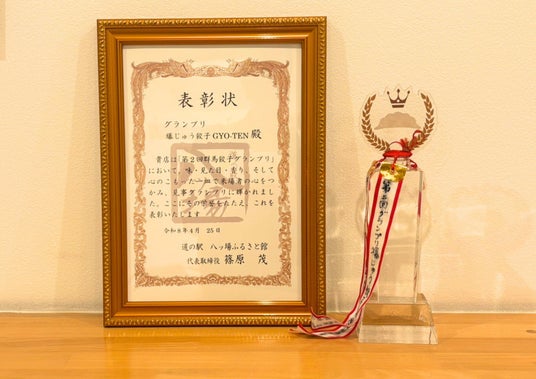 表彰状
グランプリ
爆じゅう餃子 GYO-TEN 殿
貴店は「第２回群馬餃子グランプリ」
において、味・見た目・香り、そして
心のこもった一皿で来場者の心をつ
かみ、見事グランプリに輝かれまし
た。ここにその栄誉をたたえ、これを
表彰いたします
令和8年4月 25日
道の駅 八ッ場ふるさと館
代表取締役 篠原 茂
グランプリ爆じゅう